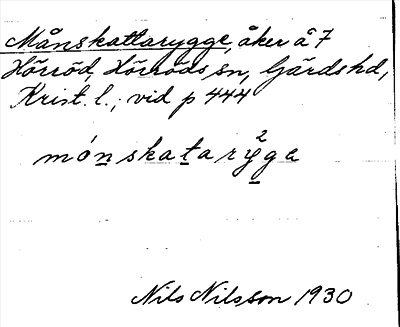 Månskattarygge, åker å 7
Hörröd, Hörröds sn, Gärds hd,
Krist. l.; vid p 444
mónskatarỹge
2
Nils Nilsson 1930